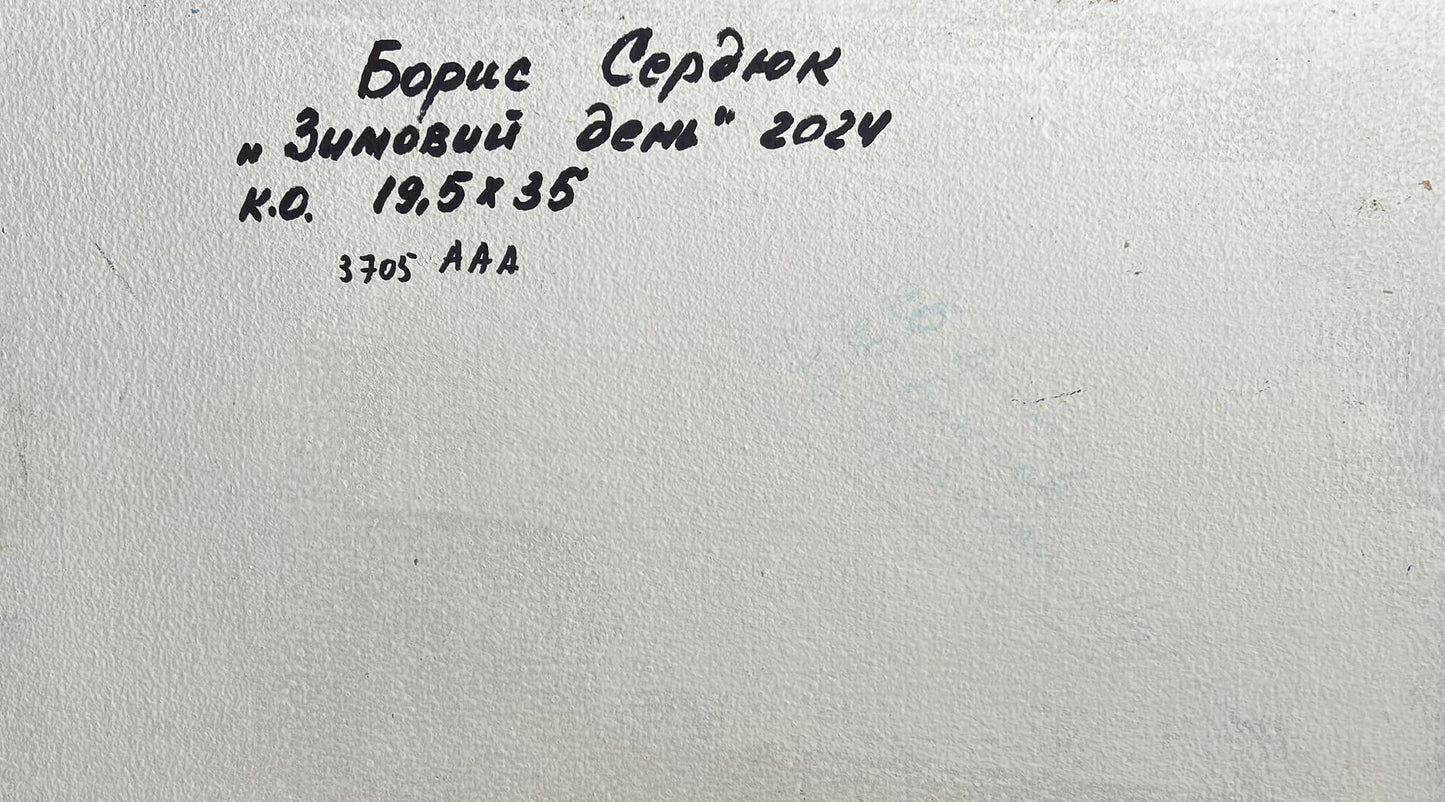 Борис Сердюк
„Зимовий день" 2024
к.о. 19,5х35
3705 ААА